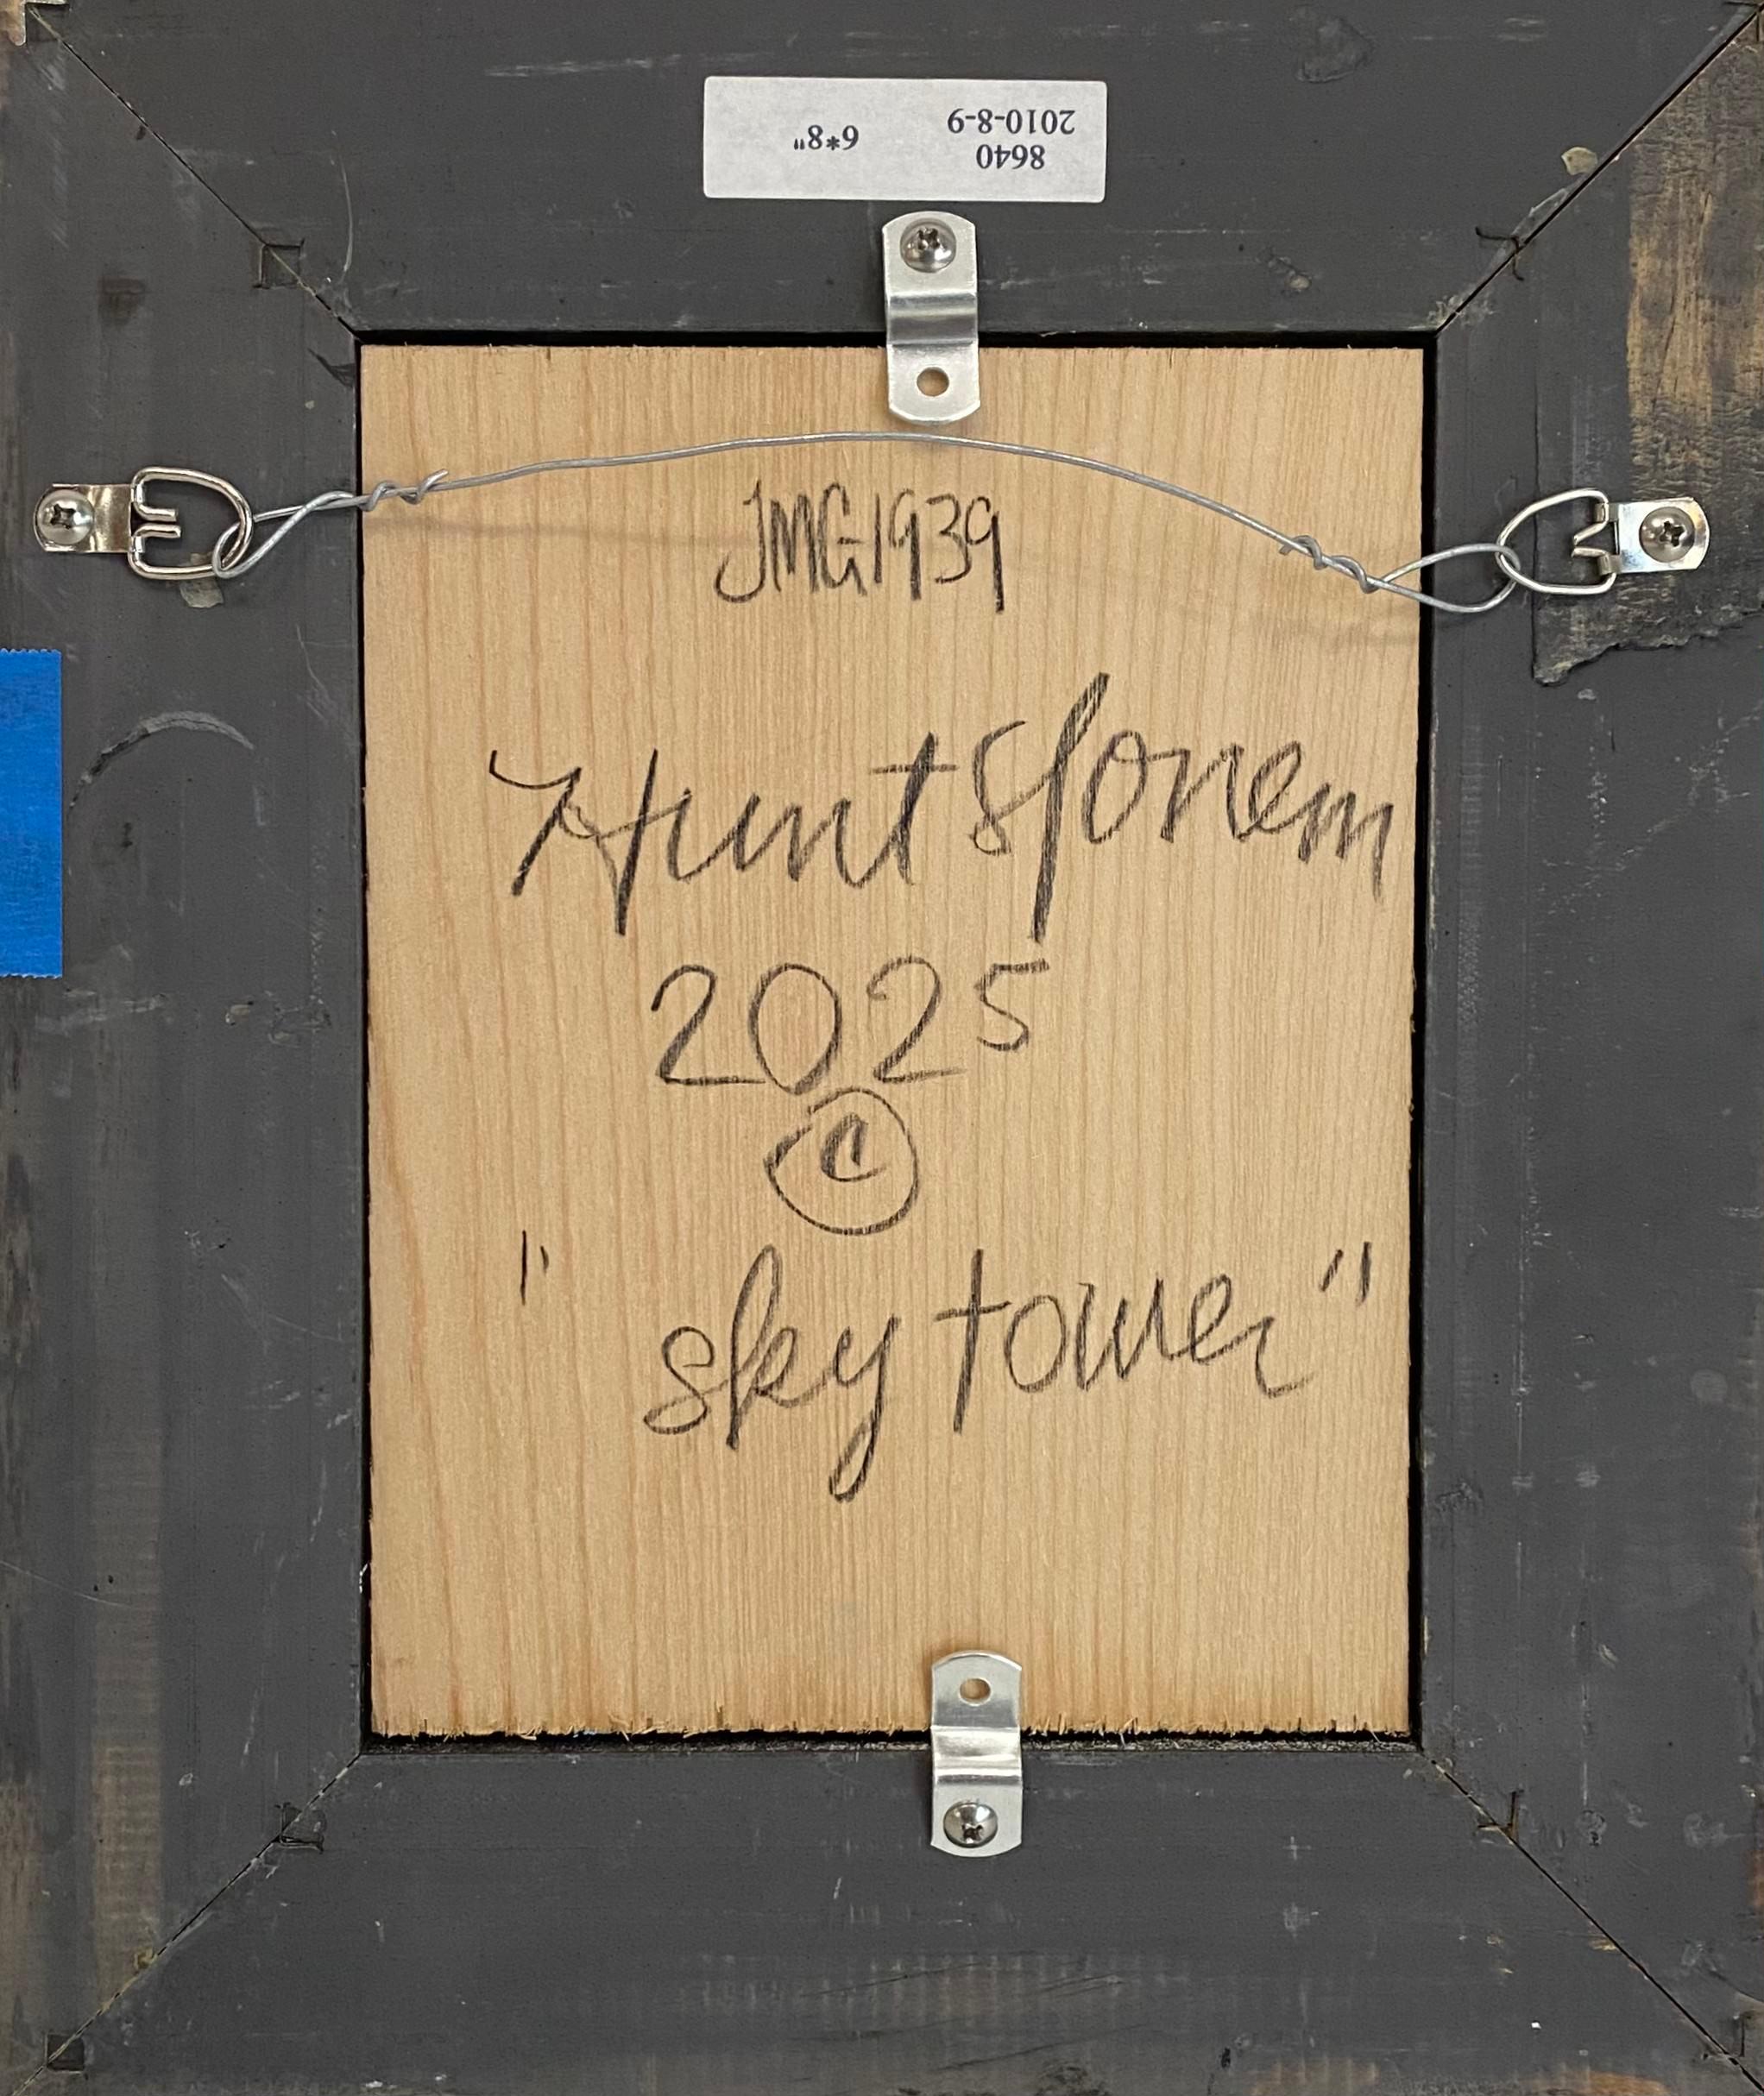 2010-8-9
8640
6*8"
JMG1939
Hunt Slonem
2025
©
"sky tower"